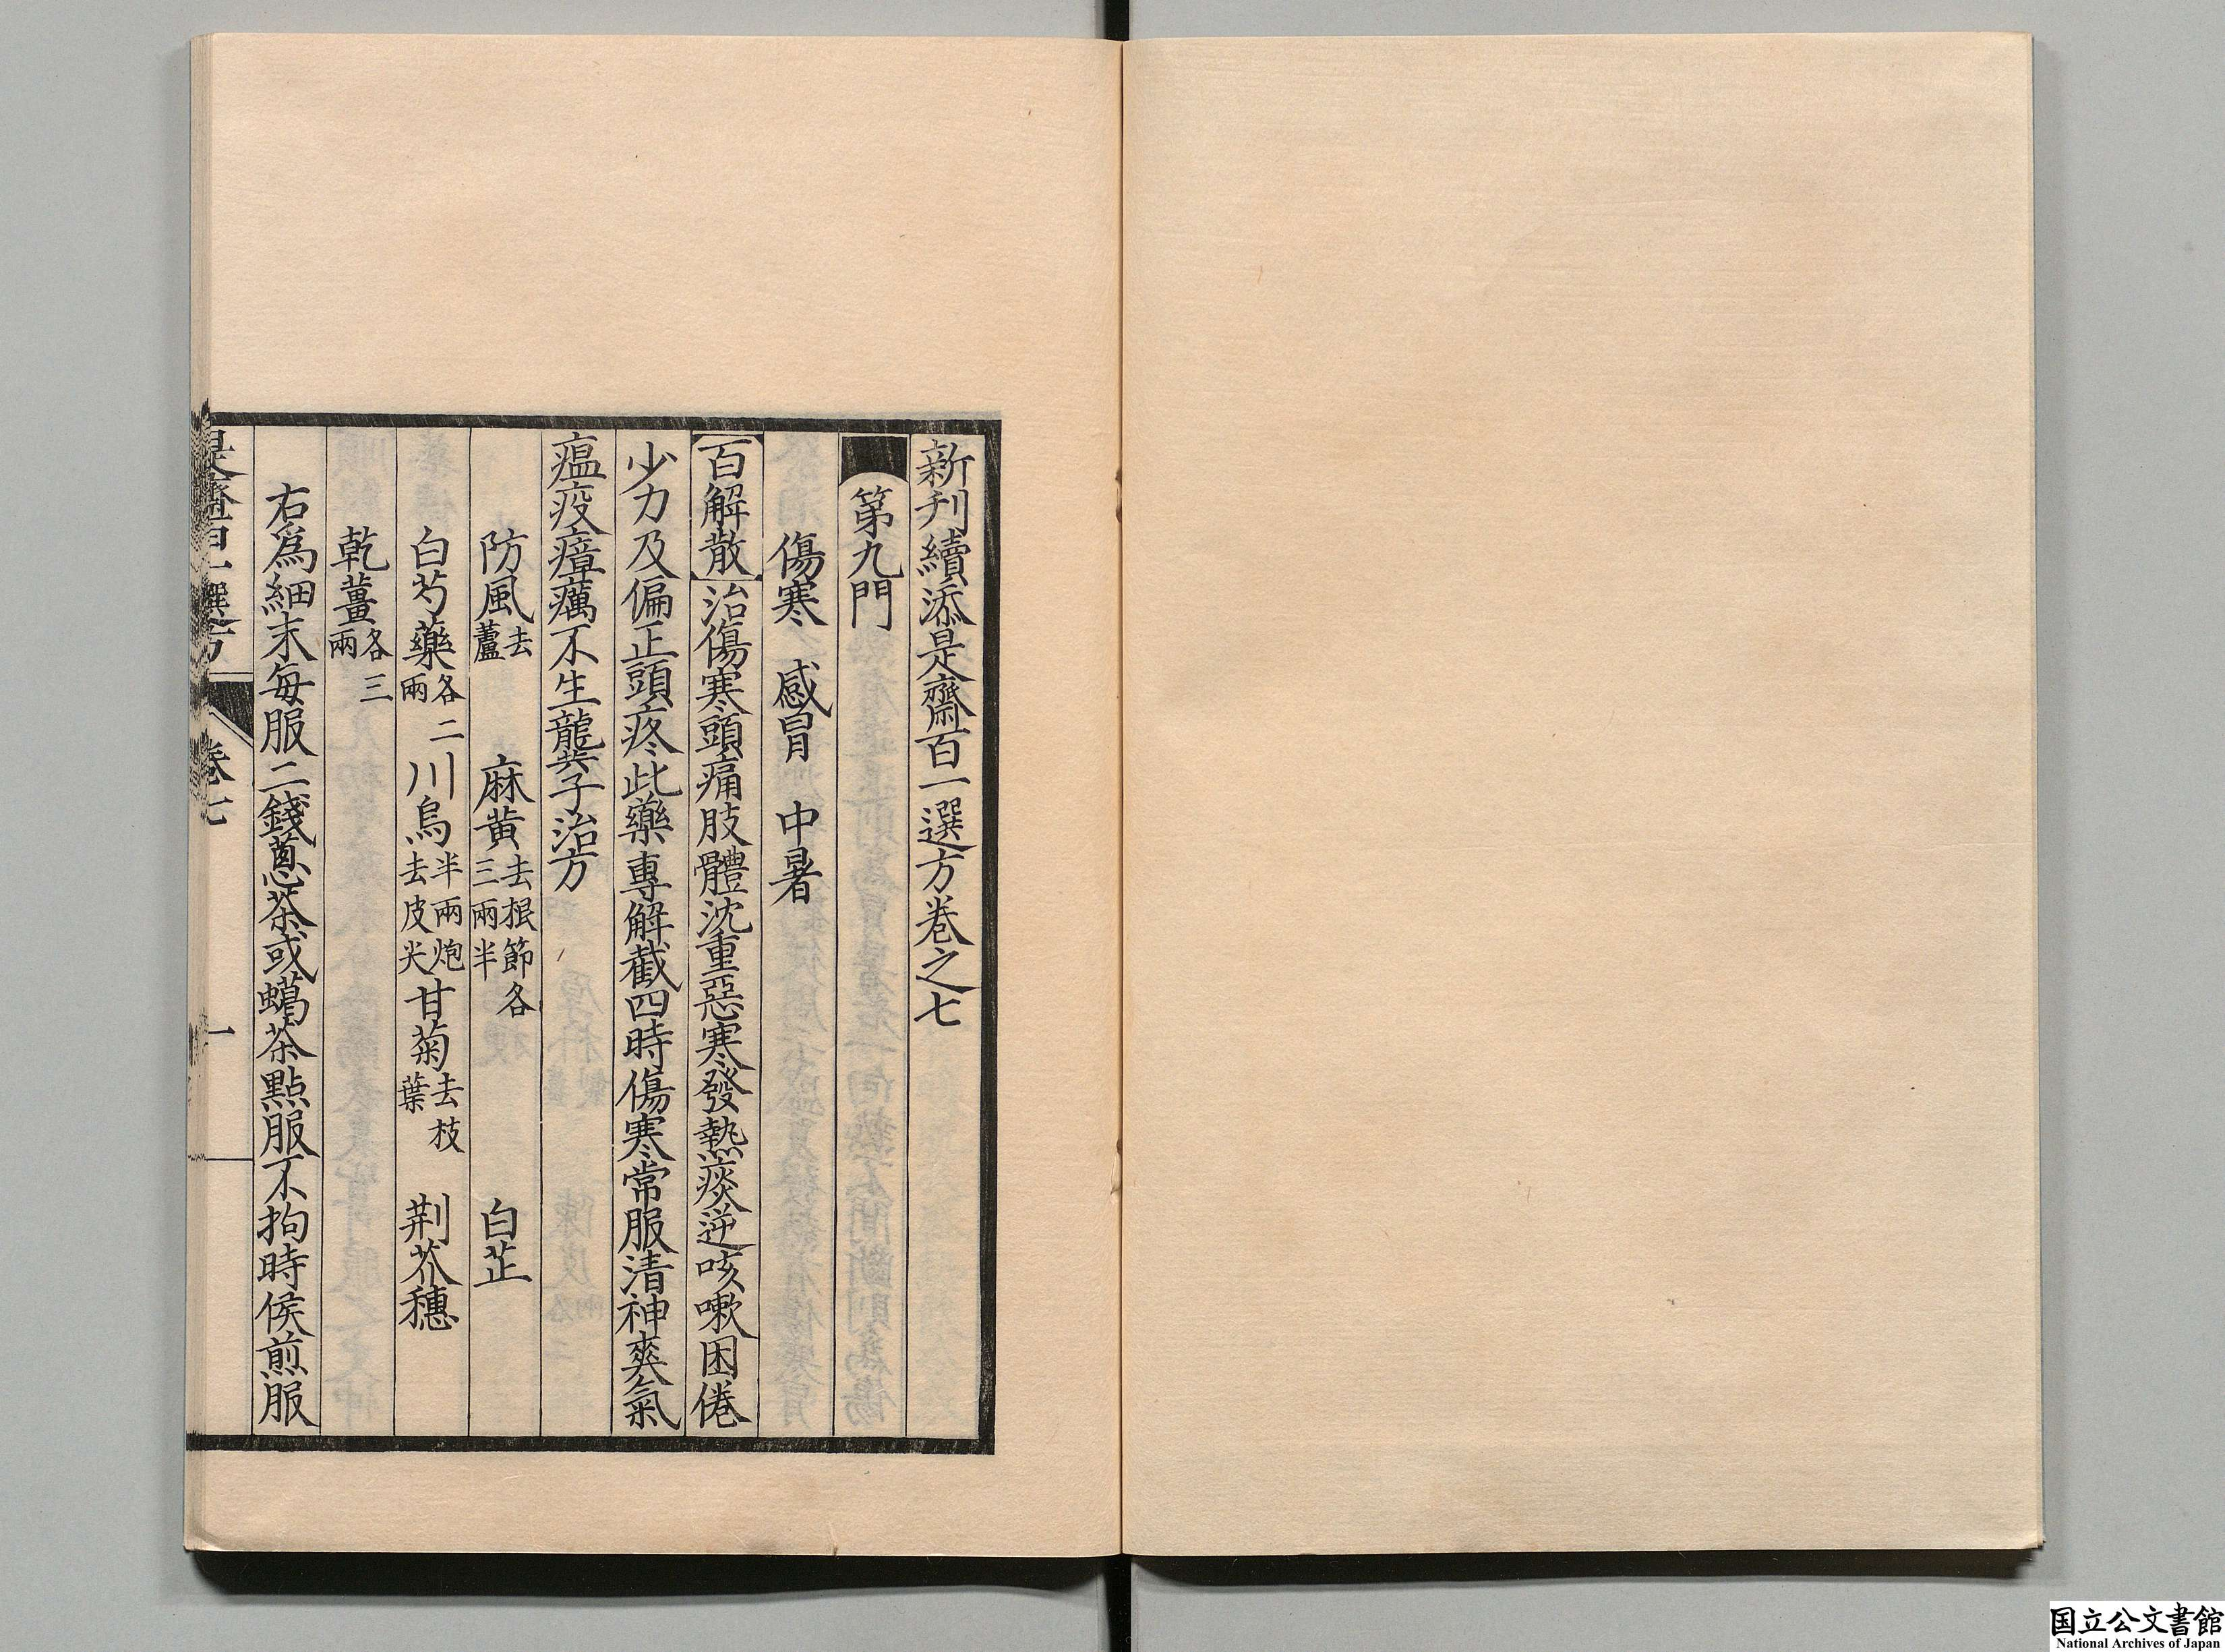 新刋續添是齋百一選方卷之七
第九門
傷寒　感冒　中暑
百解散治傷寒頭痛肢體沈重惡寒發熱痰逆咳嗽困倦
少力及偏正頭疼此藥專解截四時傷寒常服清神爽氣
瘟疫瘴癘不生龍㳟子治方
防風去蘆　麻黃去根節各三兩半　白芷
白芍藥各二兩　川烏半兩炮去皮尖　甘菊去枝葉　荆芥穗
乾薑各三兩
右爲細末每服二錢葱茶或蠟茶點服不拘時候煎服
是齋百一選方　卷七　一
国立公文書館
National Archives of Japan